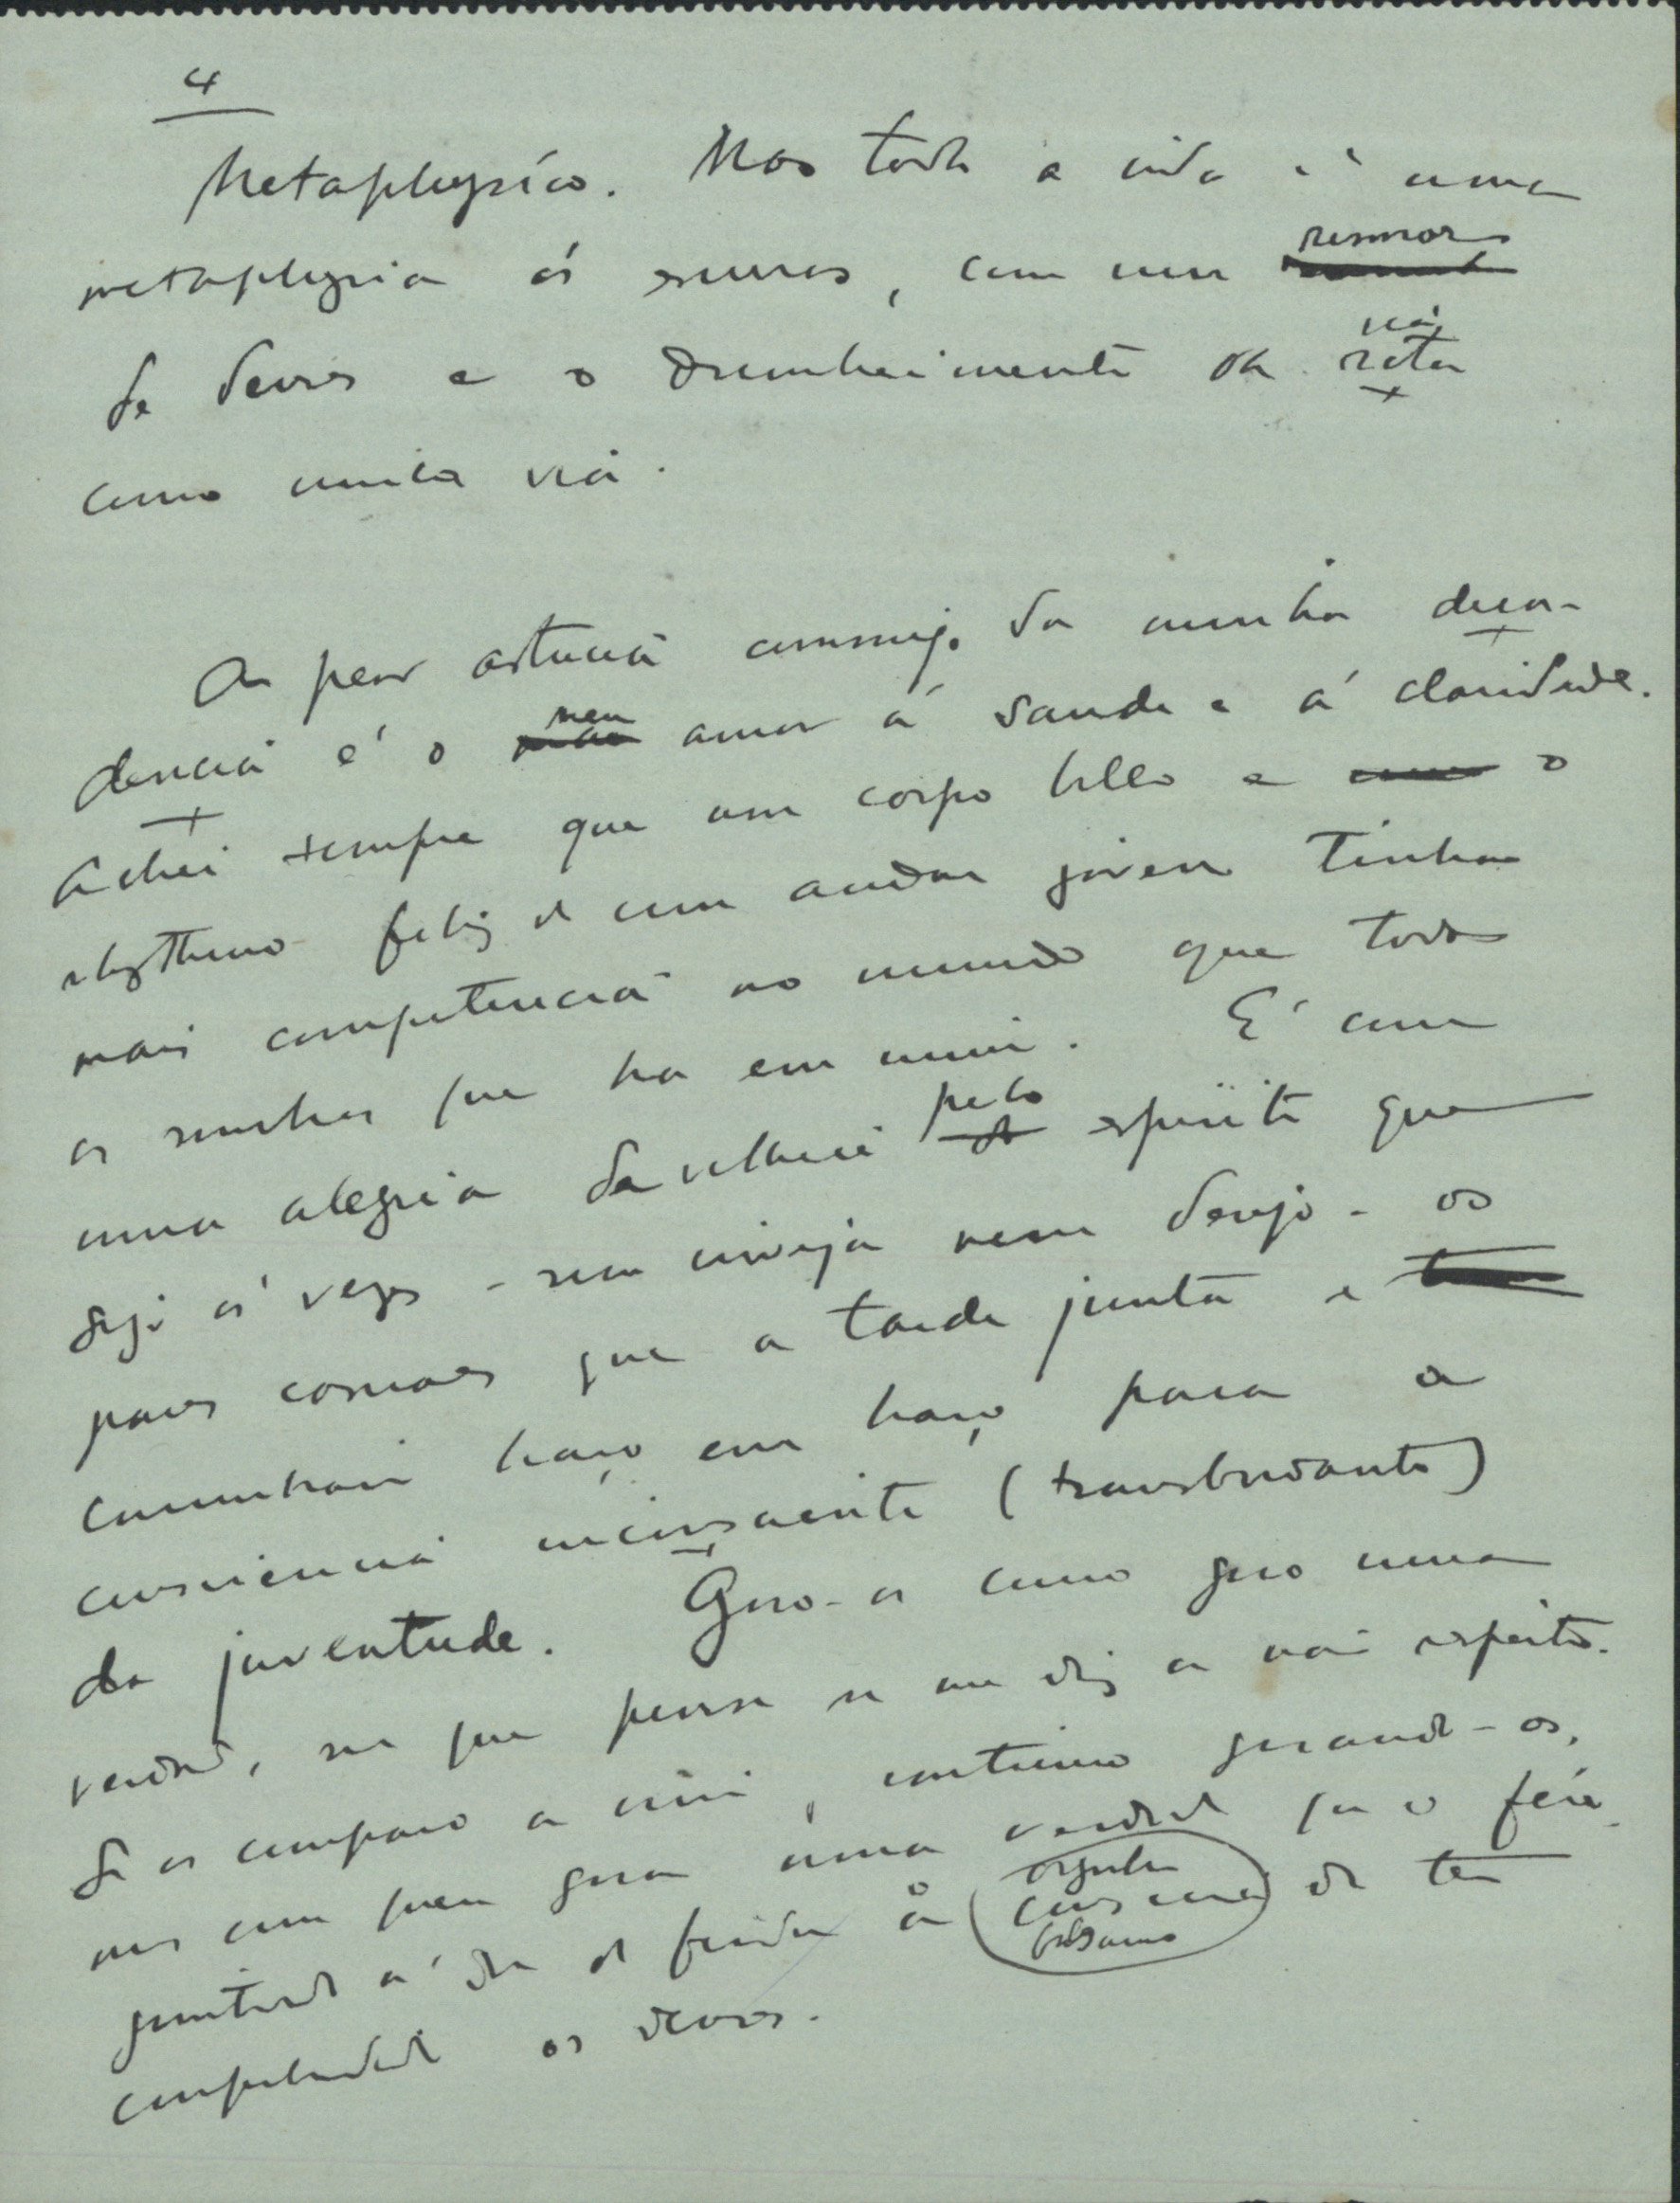 4
Metaphysico. Mas toda a vida é uma
metaphysica ás escuras, com um rumor
de deuses e o desconhecimento da rota
via
como unica via.
A peor astucia commigo da minha deca-
dencia é o meu amor á saude e á claridade.
Achei sempre que um corpo bello e o
rhythmo feliz de um andar jovem tinham
mais competencia no mundo que todos
os sonhos que ha em mim. É com
uma alegria da velhice pelo espirito que
sigo ás vezes - sem inveja nem desejo - os
pares casuaes que a tarde junta e
caminham braço em braço para a
consciencia inconsciente (transbordante)
da juventude. Goso-os como goso uma
verdade, sem que pense se me diz ou não respeito.
Se os comparo a mim, continuo gosando-os,
mas como quem gosa uma verdade que o fére,
juntando á dor da ferida a
orgulho
consciencia de ter
balsamo
comprehendido os deuses.